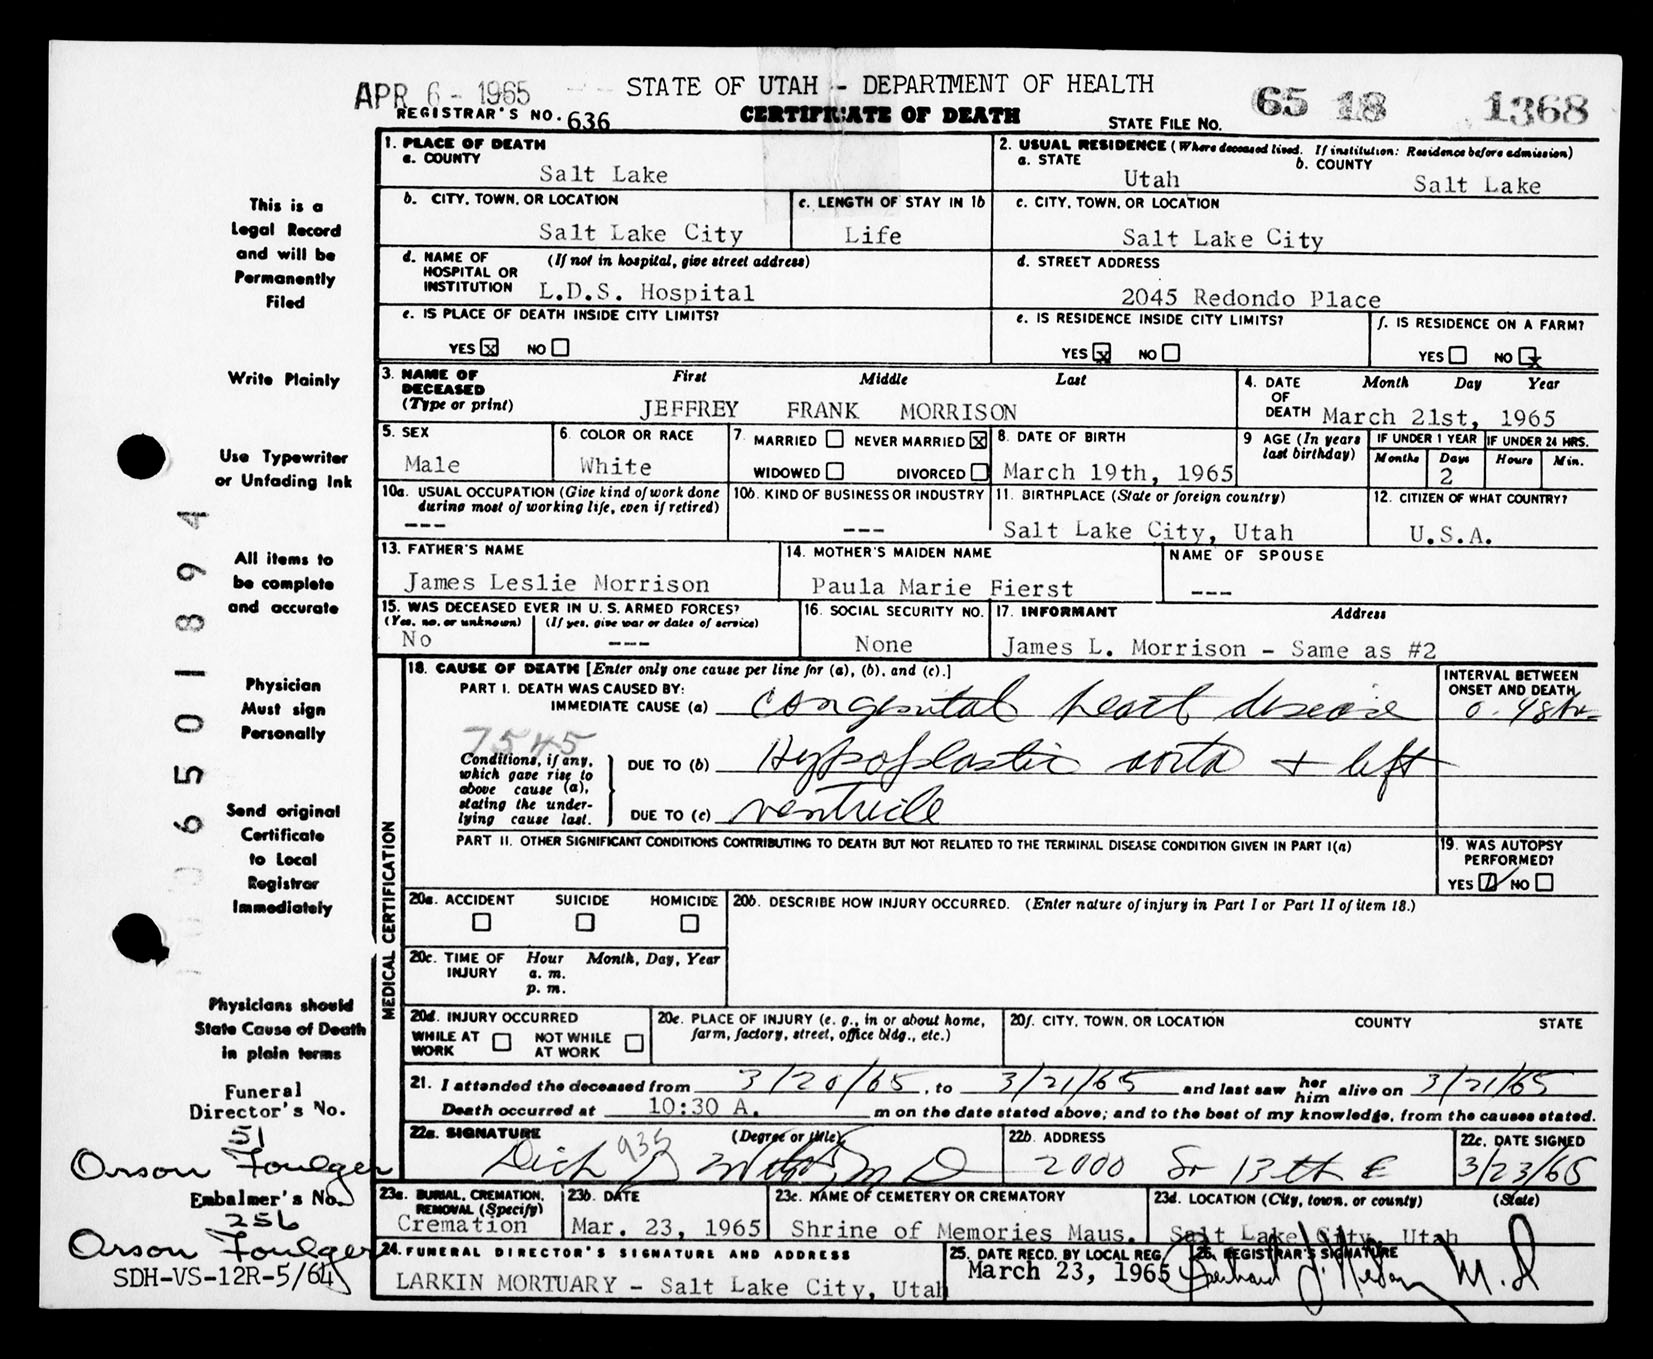 APR 6 - 1965
STATE OF UTAH - DEPARTMENT OF HEALTH
65 18 1368
REGISTRAR'S NO. 636
CERTIFICATE OF DEATH
STATE FILE NO.
This is a
Legal Record
and will be
Permanently
Filed
Write Plainly
Use Typewriter
or Unfading Ink
All items to
be complete
and accurate
Physician
Must sign
Personally
Send original
Certificate
to Local
Registrar
Immediately
Physicians should
State Cause of Death
in plain terms
Funeral
Director's No.
51
Orson Foulger
Embalmer's No.
256
Orson Foulger
SDH-VS-12R-5/64
6501894
1. PLACE OF DEATH
a. COUNTY
Salt Lake
2. USUAL RESIDENCE (Where deceased lived. If institution: Residence before admission)
a. STATE
Utah
b. COUNTY
Salt Lake
b. CITY, TOWN, OR LOCATION
Salt Lake City
c. LENGTH OF STAY IN 1b
Life
c. CITY, TOWN, OR LOCATION
Salt Lake City
d. NAME OF HOSPITAL OR INSTITUTION
(If not in hospital, give street address)
L.D.S. Hospital
d. STREET ADDRESS
2045 Redondo Place
e. IS PLACE OF DEATH INSIDE CITY LIMITS?
YES x NO
e. IS RESIDENCE INSIDE CITY LIMITS?
YES x NO
f. IS RESIDENCE ON A FARM?
YES NO x
3. NAME OF DECEASED (Type or print)
First Middle Last
JEFFREY FRANK MORRISON
4. DATE OF DEATH
Month Day Year
March 21st, 1965
5. SEX
Male
6. COLOR OR RACE
White
7. MARRIED NEVER MARRIED x
WIDOWED DIVORCED
8. DATE OF BIRTH
March 19th, 1965
9 AGE (In years last birthday)
IF UNDER 1 YEAR
Months Days
2
IF UNDER 24 HRS.
Hours Min.
10a. USUAL OCCUPATION (Give kind of work done during most of working life, even if retired)
---
10b. KIND OF BUSINESS OR INDUSTRY
---
11. BIRTHPLACE (State or foreign country)
Salt Lake City, Utah
12. CITIZEN OF WHAT COUNTRY?
U.S.A.
13. FATHER'S NAME
James Leslie Morrison
14. MOTHER'S MAIDEN NAME
Paula Marie Fierst
NAME OF SPOUSE
---
15. WAS DECEASED EVER IN U.S. ARMED FORCES?
(Yes, no, or unknown) (If yes, give war or dates of service)
No ---
16. SOCIAL SECURITY NO.
None
17. INFORMANT Address
James L. Morrison - Same as #2
MEDICAL CERTIFICATION
18. CAUSE OF DEATH [Enter only one cause per line for (a), (b), and (c).]
PART I. DEATH WAS CAUSED BY:
IMMEDIATE CAUSE (a) congenital heart disease
INTERVAL BETWEEN ONSET AND DEATH
0-48 hr
7545
Conditions, if any, which gave rise to above cause (a), stating the underlying cause last.
DUE TO (b) Hypoplastic aorta + left
DUE TO (c) ventricle
PART II. OTHER SIGNIFICANT CONDITIONS CONTRIBUTING TO DEATH BUT NOT RELATED TO THE TERMINAL DISEASE CONDITION GIVEN IN PART I(a)
19. WAS AUTOPSY PERFORMED?
YES NO
20a. ACCIDENT SUICIDE HOMICIDE
20b. DESCRIBE HOW INJURY OCCURRED. (Enter nature of injury in Part I or Part II of item 18.)
20c. TIME OF INJURY Hour Month, Day, Year
a. m.
p. m.
20d. INJURY OCCURRED
WHILE AT WORK NOT WHILE AT WORK
20e. PLACE OF INJURY (e. g., in or about home, farm, factory, street, office bldg., etc.)
20f. CITY, TOWN, OR LOCATION COUNTY STATE
21. I attended the deceased from 3/20/65, to 3/21/65 and last saw her him alive on 3/21/65
Death occurred at 10:30 A. m on the date stated above; and to the best of my knowledge, from the causes stated.
22a. SIGNATURE (Degree or title)
935
M D
22b. ADDRESS
2000 So 13th E
22c. DATE SIGNED
3/23/65
23a. BURIAL, CREMATION, REMOVAL (Specify)
Cremation
23b. DATE
Mar. 23, 1965
23c. NAME OF CEMETERY OR CREMATORY
Shrine of Memories Maus.
23d. LOCATION (City, town, or county) (State)
Salt Lake City, Utah
24. FUNERAL DIRECTOR'S SIGNATURE AND ADDRESS
LARKIN MORTUARY - Salt Lake City, Utah
25. DATE RECD. BY LOCAL REG.
March 23, 1965
26. REGISTRAR'S SIGNATURE
M.D